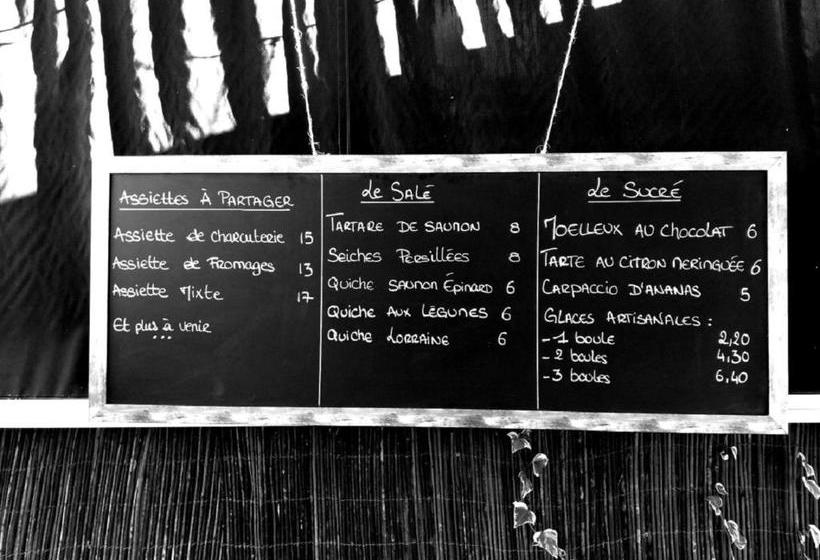 Assiettes À Partager
Assiette de charcuterie 15
Assiette de Fromages 13
Assiette Mixte 17
Et plus à venir
...
Le Salé
Tartare de saumon 8
Seiches Persillées 8
Quiche saumon Épinard 6
Quiche aux légumes 6
Quiche Lorraine 6
Le Sucré
Moelleux au chocolat 6
Tarte au citron meringuée 6
Carpaccio d'ananas 5
Glaces artisanales :
-1 boule 2,20
-2 boules 4,30
-3 boules 6,40